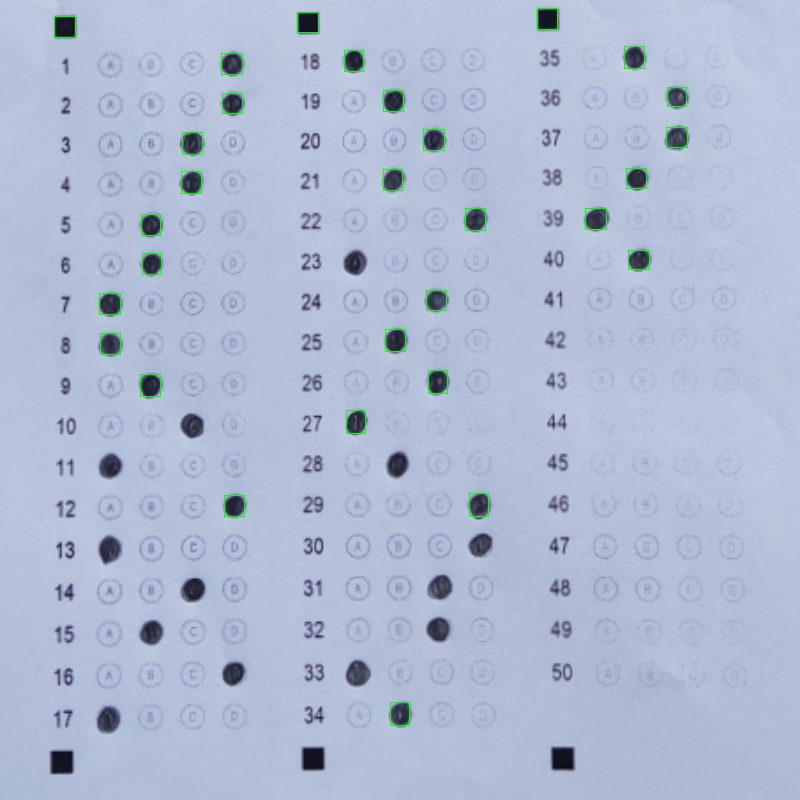 1 A B C
2 A B C
3 A B D
4 A B D
5 A C D
6 A C D
7 B C D
8 B C D
9 A C D
10 A B D
11 B C D
12 A B C
13 B C D
14 A B D
15 A C D
16 A B C
17 B C D
18 B C D
19 A C D
20 A B D
21 A C D
22 A B C
23 B C D
24 A B D
25 A C D
26 A B D
27
28 A C D
29 A B C
30 A B C
31 A B D
32 A B D
33 B C D
34 A C D
35 A C D
36 A B D
37 A B D
38 A
39 B C D
40 A
41 A B C D
42
43 A B C D
44
45 A B C D
46 A B C D
47 A B C D
48 A B C D
49 A B C D
50 A B C D